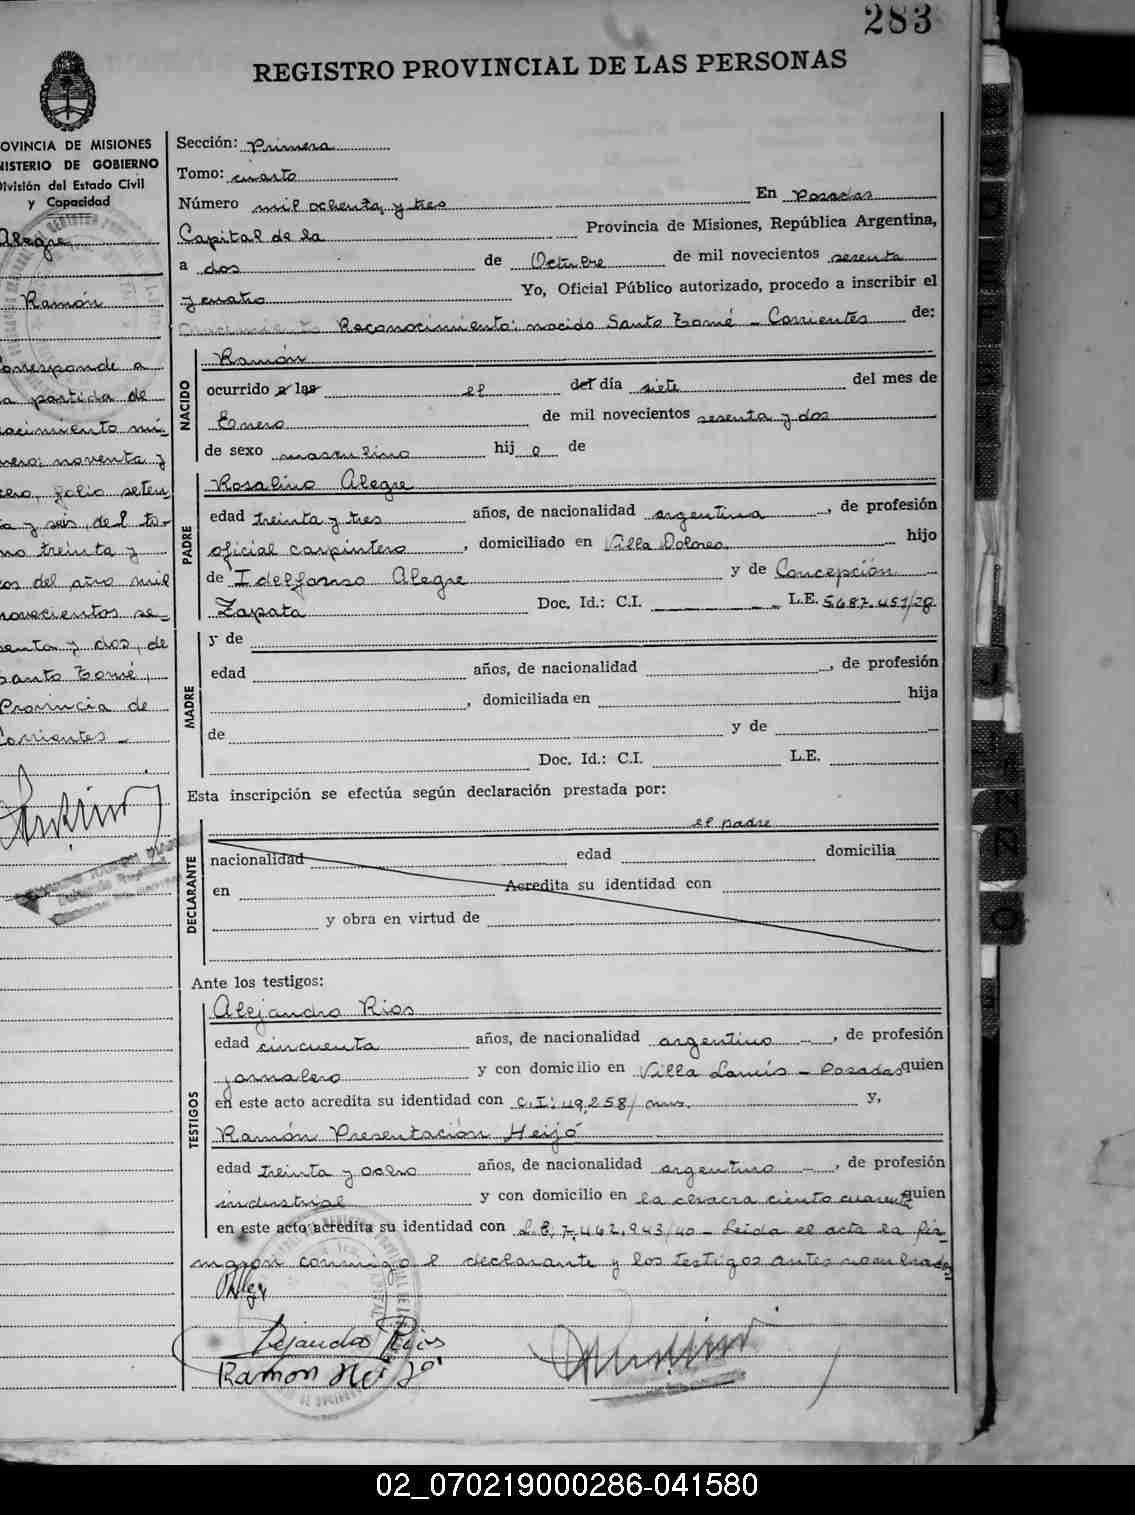 283
REGISTRO PROVINCIAL DE LAS PERSONAS
OVINCIA DE MISIONES
NISTERIO DE GOBIERNO
División del Estado Civil
y Capacidad
Alegre
Ramón
orresponde a
a partida de
acimiento mi-
nero: noventa y
cero, folio seten
ta y seis, del to-
mo treinta y
os del año mil
novecientos se-
senta y dos, de
Santo Tomé,
Provincia de
Corrientes -
Sección: Primera
Tomo: cuarto
Número mil ochenta y tres En Posadas
Capital de la Provincia de Misiones, República Argentina,
a dos de Octubre de mil novecientos sesenta
y cuatro Yo, Oficial Público autorizado, procedo a inscribir el
Reconocimiento: nacido Santo Tomé - Corrientes de:
NACIDO
Ramón
ocurrido a las el del día siete del mes de
Enero de mil novecientos sesenta y dos
de sexo masculino hij o de
PADRE
Rosalino Alegre
edad treinta y tres años, de nacionalidad argentina, de profesión
oficial carpintero, domiciliado en Villa Dolores hijo
de Idelfonso Alegre y de Concepción
Zapata Doc. Id.: C.I. L.E. 5.687.451/28
MADRE
y de
edad años, de nacionalidad , de profesión
, domiciliada en hija
de y de
Doc. Id.: C.I. L.E.
Esta inscripción se efectúa según declaración prestada por:
DECLARANTE
el padre
nacionalidad edad domicilia
en Acredita su identidad con
y obra en virtud de
Ante los testigos:
TESTIGOS
Alejandro Rios
edad cincuenta años, de nacionalidad argentino, de profesión
jornalero y con domicilio en Villa Lanús - Posadas quien
en este acto acredita su identidad con C.I: 49.258/ y,
Ramón Presentación Heijó
edad treinta y ocho años, de nacionalidad argentino, de profesión
industrial y con domicilio en la chacra ciento cuarenta quien
en este acto acredita su identidad con L.E. 7.462.943/40 - Leida el acta la fir-
maron conmigo el declarante y los testigos antes nombrados
Alejandro Rios
Ramon Heijó
02_070219000286-041580